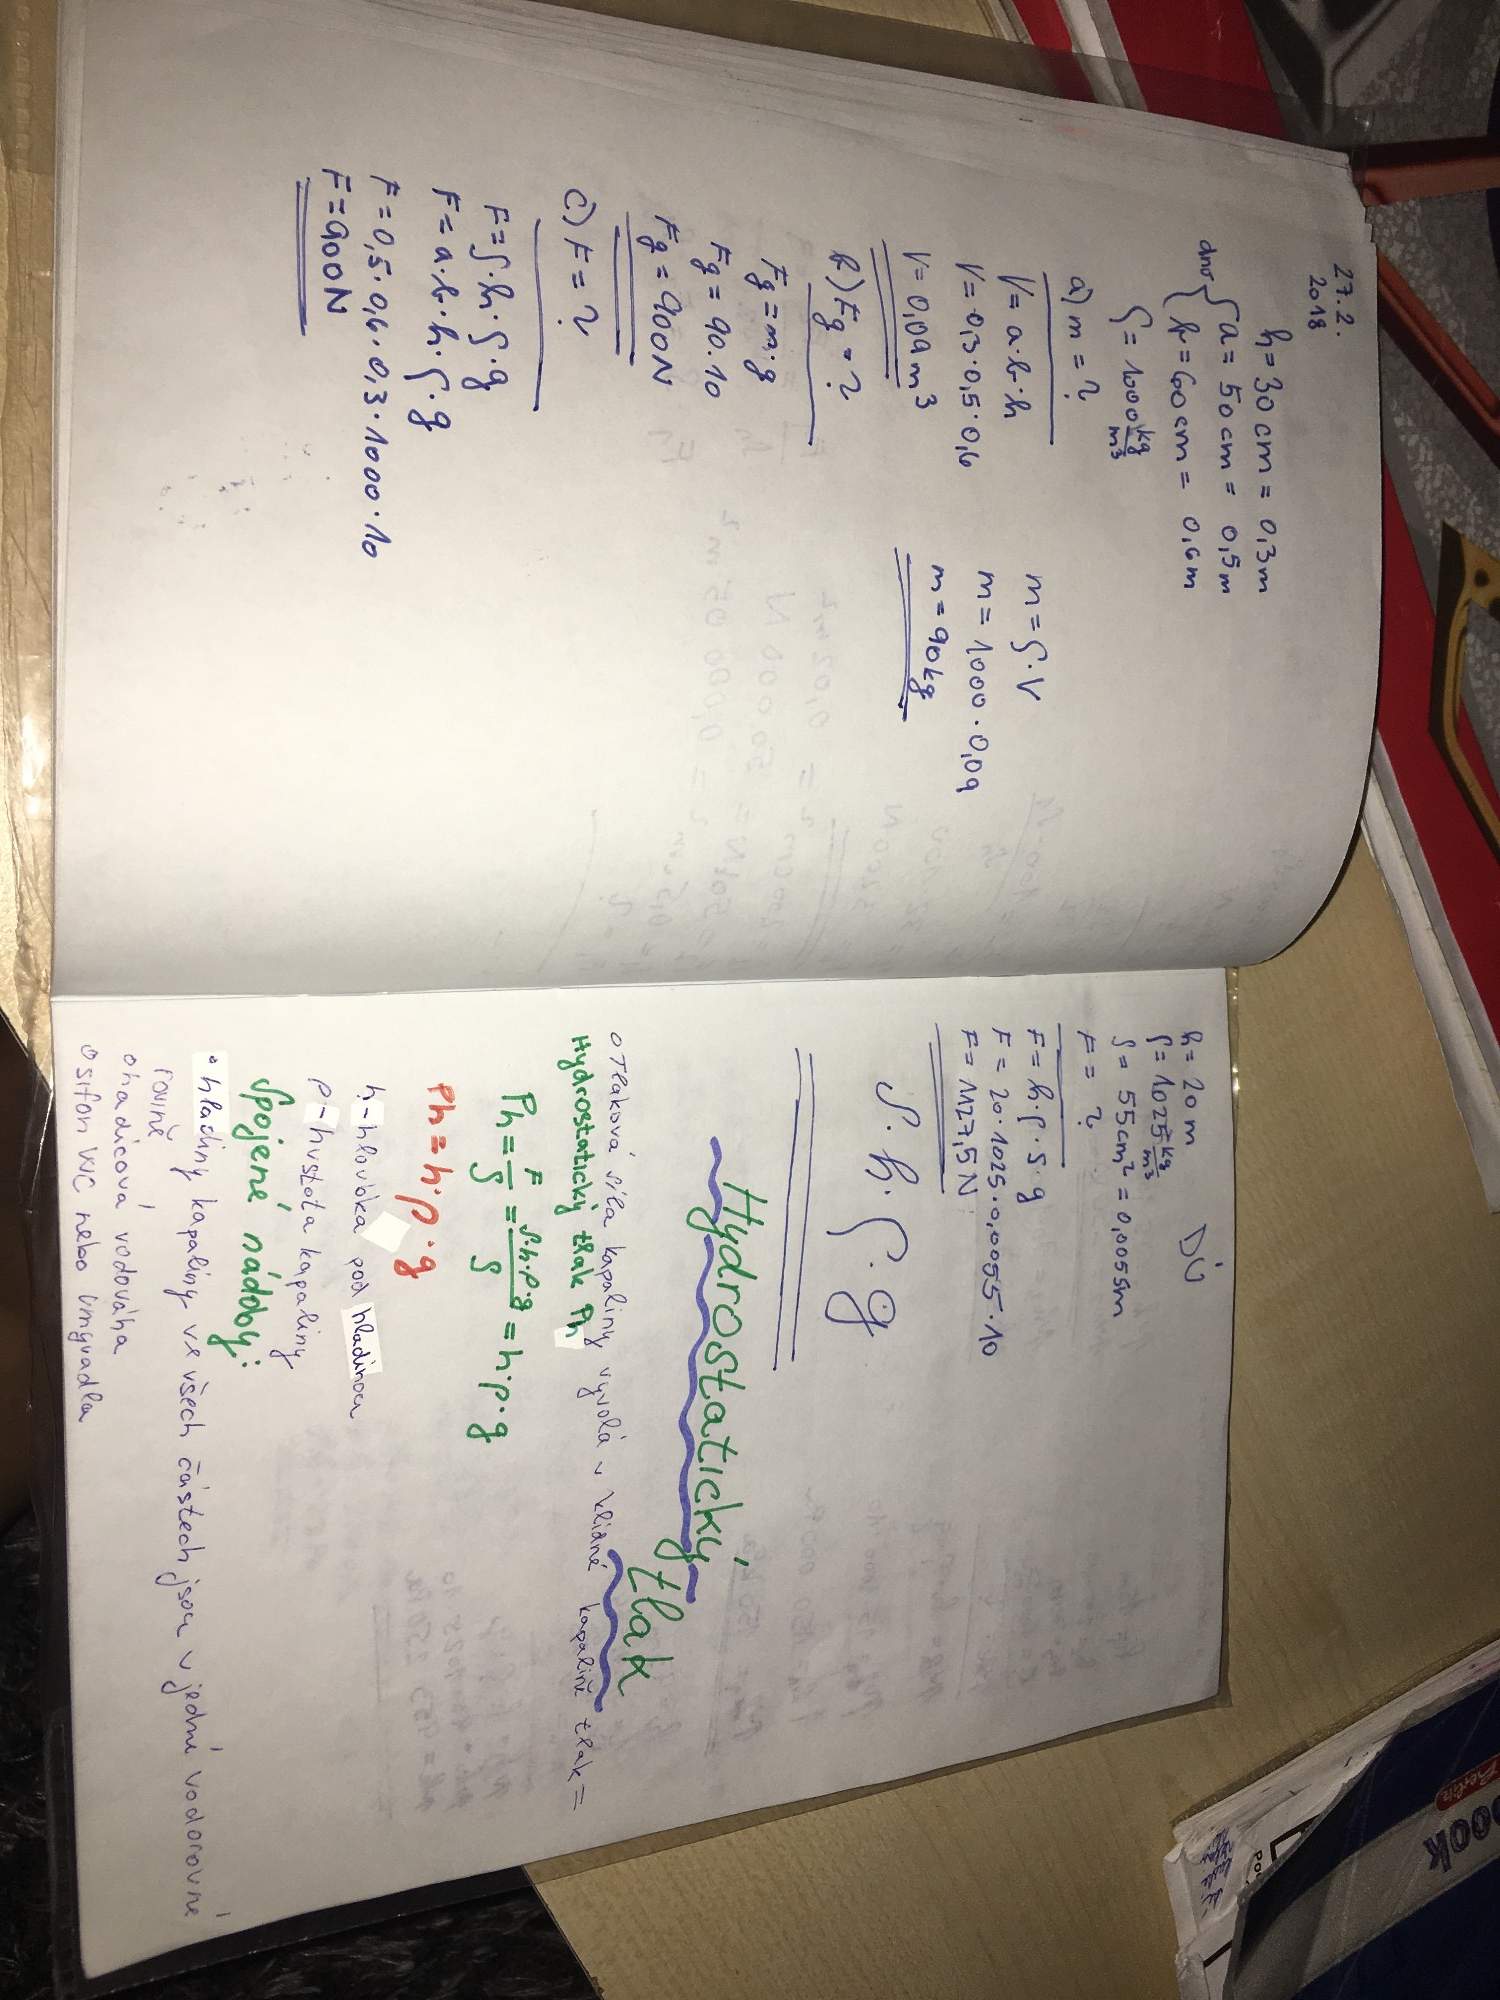 27.2.
2018
h = 30 cm = 0,3 m
dno { a = 50 cm = 0,5 m
b = 60 cm = 0,6 m
ρ = 1000 kg/m³
a) m = ?
V = a·b·h
V = 0,3·0,5·0,6
V = 0,09 m³
m = ρ·V
m = 1000·0,09
m = 90 kg
b) Fg = ?
Fg = m·g
Fg = 90·10
Fg = 900 N
c) F = ?
F = S·h·ρ·g
F = a·b·h·ρ·g
F = 0,5·0,6·0,3·1000·10
F = 900 N
DÚ
h = 20 m
ρ = 1025 kg/m³
S = 55 cm² = 0,0055 m
F = ?
F = h·ρ·S·g
F = 20·1025·0,0055·10
F = 1127,5 N
S·h·ρ·g
Hydrostatický tlak
o Tlaková síla kapaliny vyvolá v klidné kapalině tlak =
Hydrostatický tlak Ph
Ph = F/S = S·h·ρ·g/S = h·ρ·g
Ph = h·ρ·g
h - hloubka pod hladinou
ρ - hustota kapaliny
Spojené nádoby:
• hladiny kapaliny ve všech částech jsou v jedné vodorovné
rovině
o hadicová vodováha
o sifon WC nebo umyvadla
Berlitz